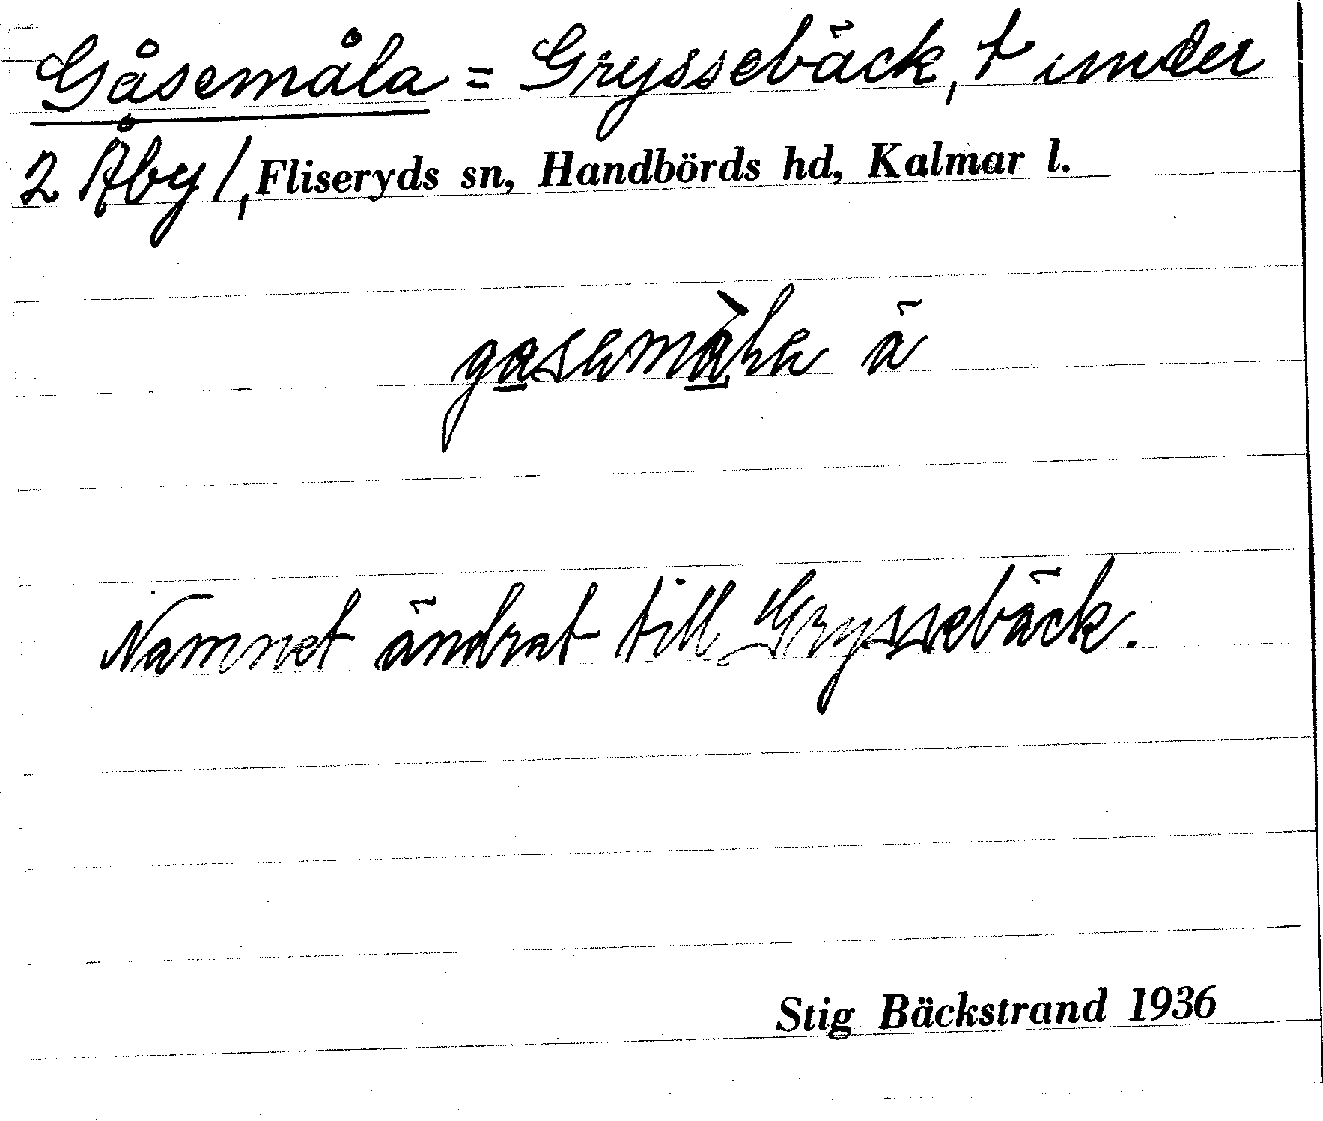 Gåsemåla = Gryssebäck, t under
2 Åby /, Fliseryds sn, Handbörds hd, Kalmar l.
ä
Namnet ändrat till Gryssebäck.
Stig Bäckstrand 1936